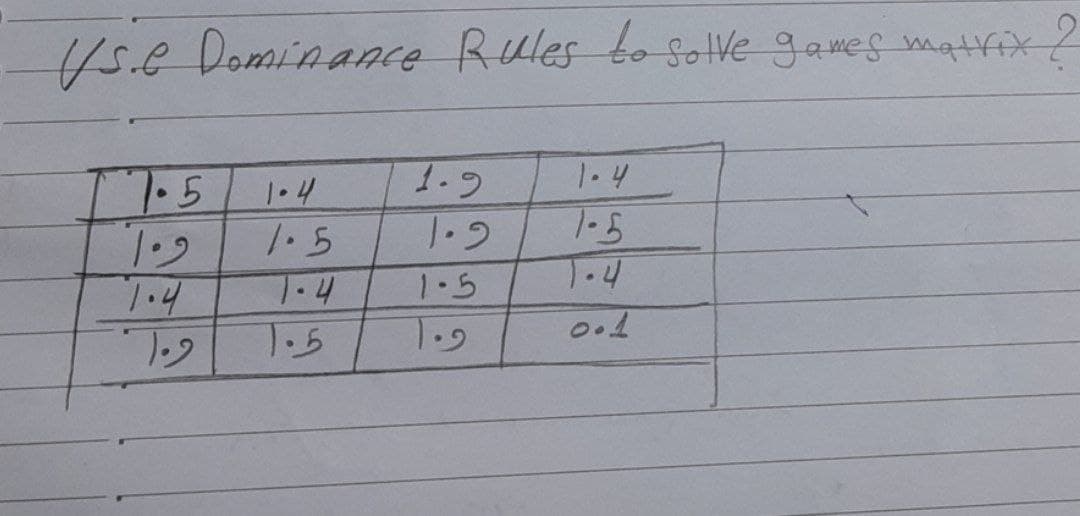 Use Dominance Rules to solve games matrix?
1.5 1.4 1.9 1.4
1.9 1.5 1.9 1.5
1.4 1.4 1.5 1.4
1.9 1.5 1.9 0.1